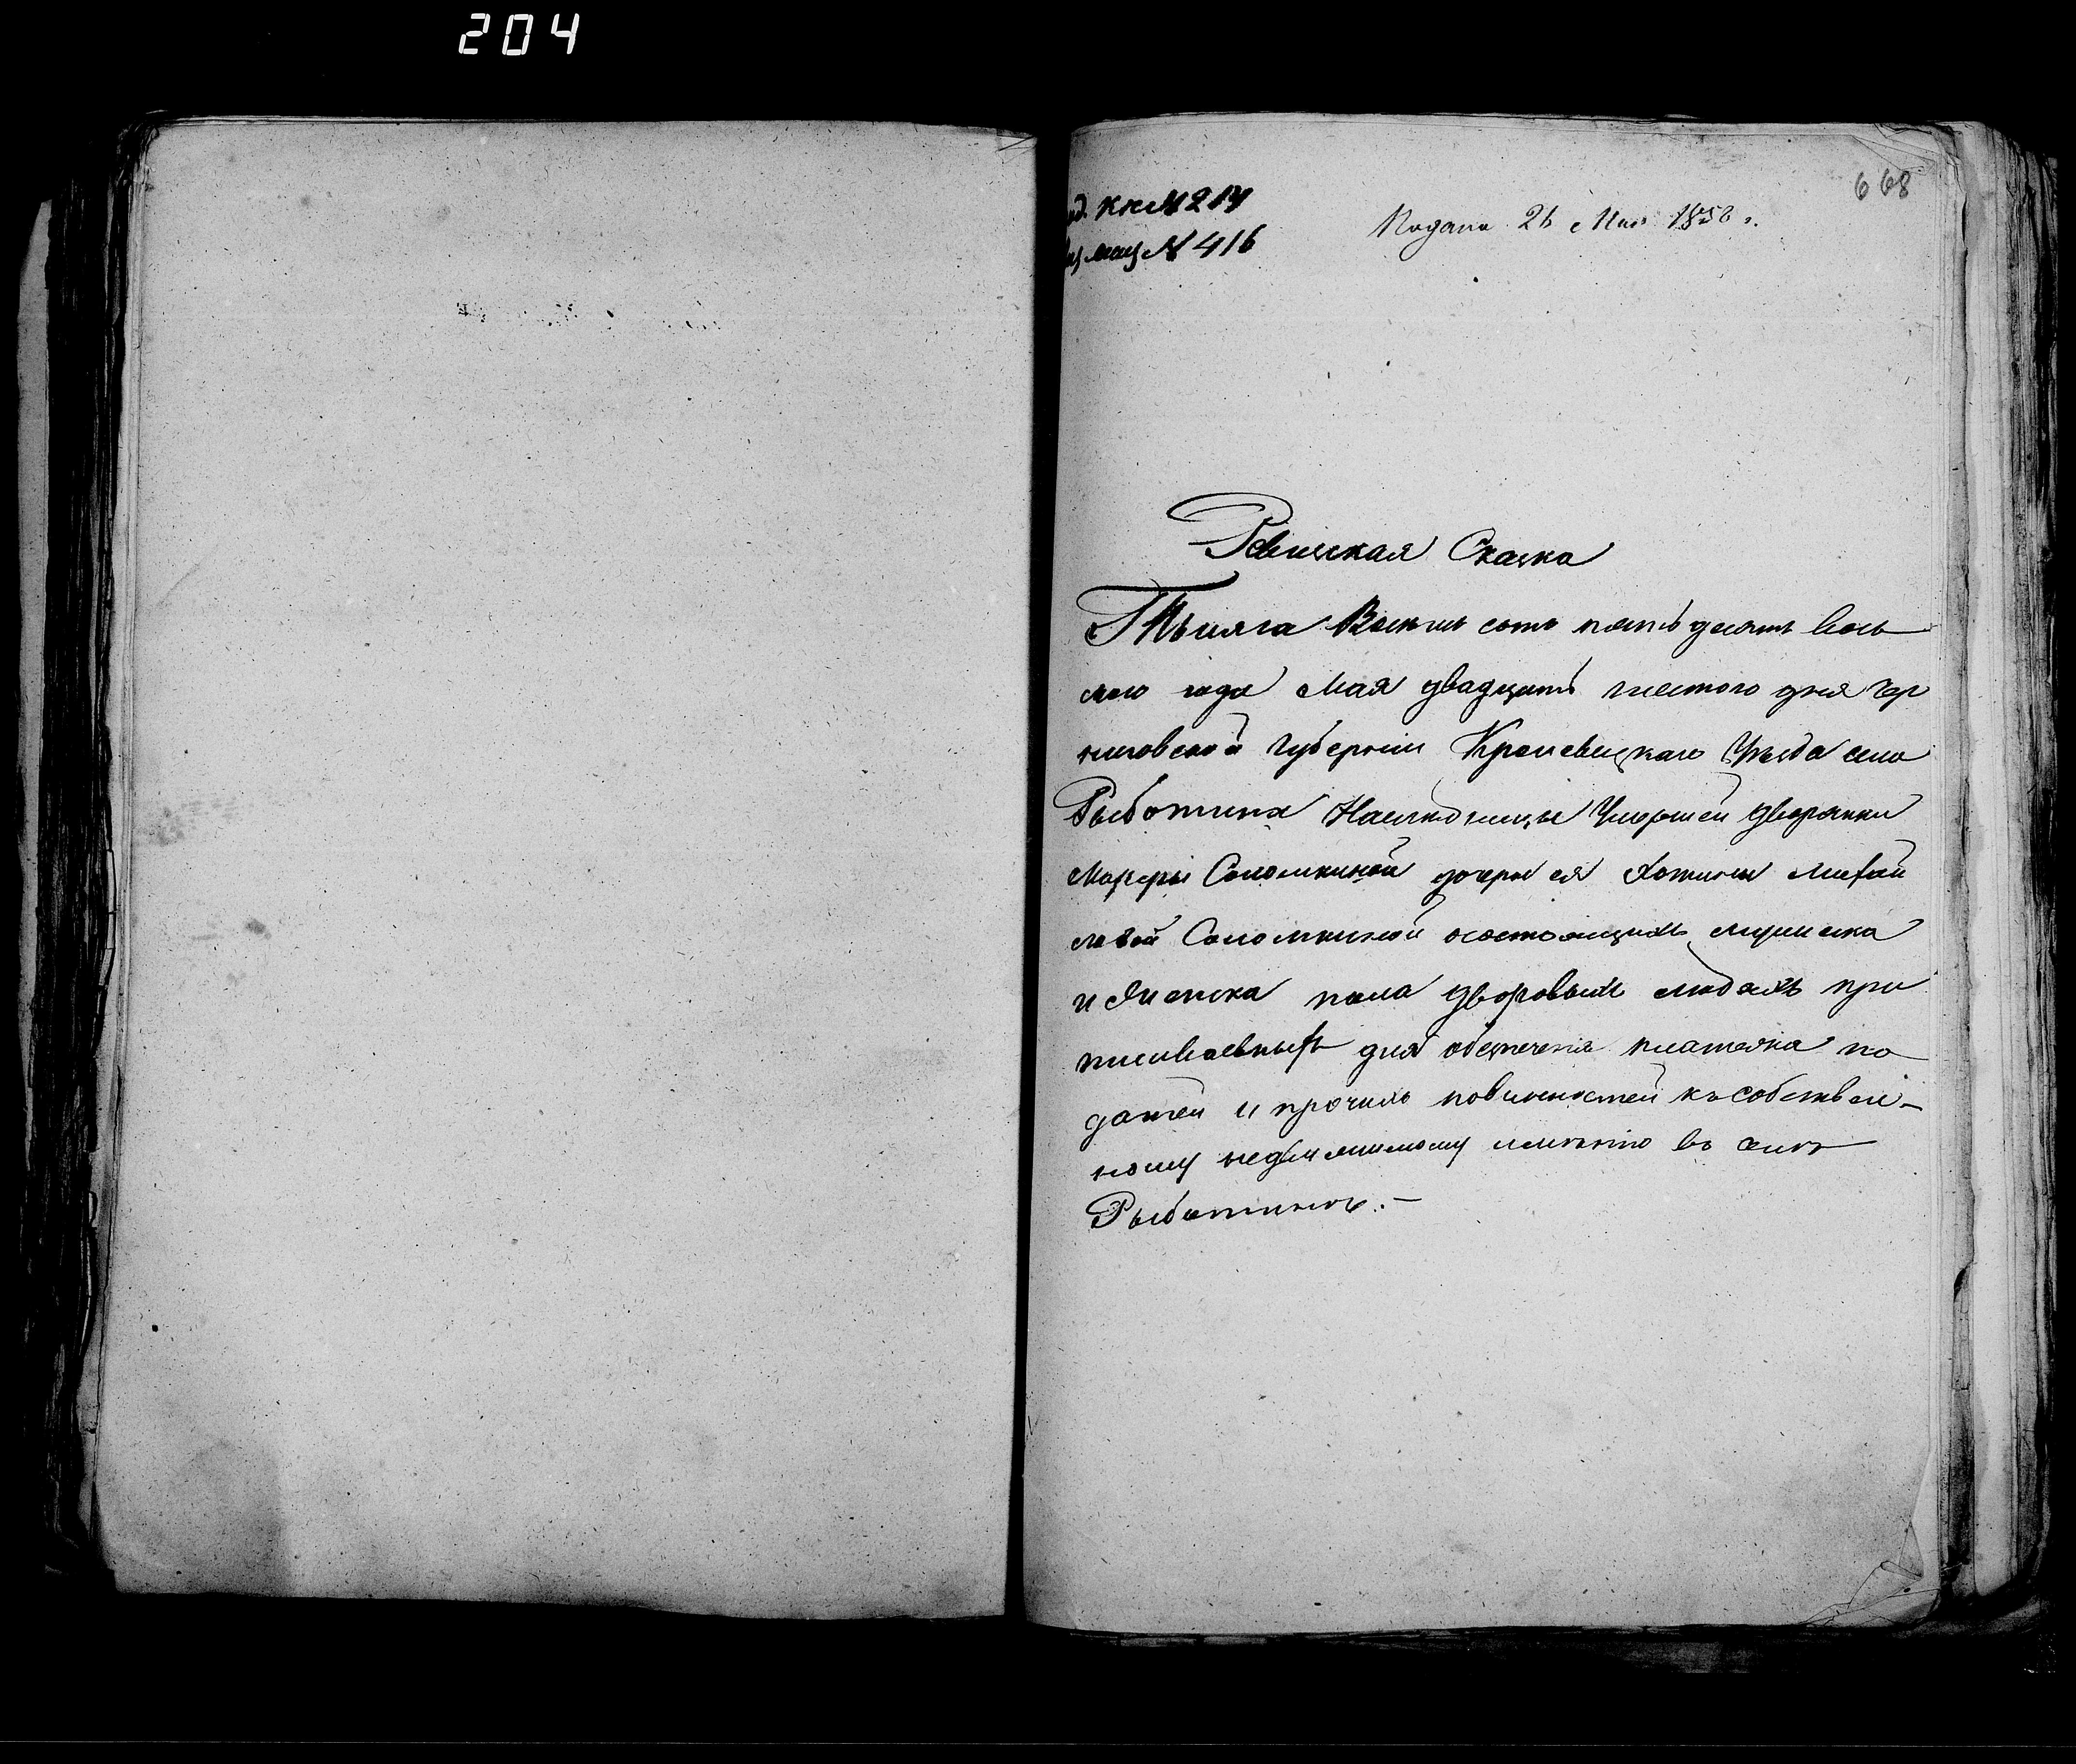 204
668
кн № 214
№ 416
Подана 26 Мая 1858 г.
Ревизская Сказка
Тысяча Восемь сотъ пятьдесятъ вось
мого года Мая двадцать шестого дня Чер
ниговской Губерніи Кролевецкаго Уѣзда села
Рыботина Наслѣдницы Умершей дворянки
Марфы Соломкиной дочери ея Михай
ловой Соломкиной о состоящихъ мужеска
и женска пола дворовыхъ людяхъ при
писываемыхъ для обезпеченія платежа по
датей и прочихъ повинностей къ собствен-
ному недвижимому имѣнію въ селѣ
Рыботинѣ. —